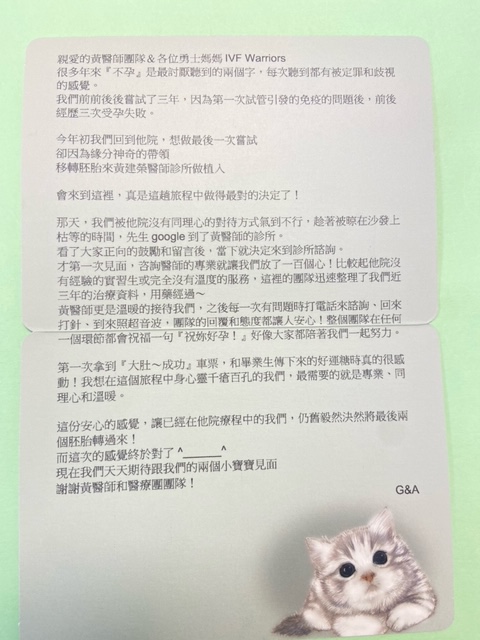 親愛的黃醫師團隊＆各位勇士媽媽 IVF Warriors
很多年來『不孕』是最討厭聽到的兩個字，每次聽到都有被定罪和歧視
的感覺。
我們前前後後嘗試了三年，因為第一次試管引發的免疫的問題後，前後
經歷三次受孕失敗。
今年初我們回到他院，想做最後一次嘗試
卻因為緣分神奇的帶領
移轉胚胎來黃建榮醫師診所做植入
會來到這裡，真是這趟旅程中做得最對的決定了！
那天，我們被他院沒有同理心的對待方式氣到不行，趁著被晾在沙發上
枯等的時間，先生 google 到了黃醫師的診所。
看了大家正向的鼓勵和留言後，當下就決定來到診所諮詢。
才第一次見面，咨詢醫師的專業就讓我們放了一百個心！比較起他院沒
有經驗的實習生或完全沒有溫度的服務，這裡的團隊迅速整理了我們近
三年的治療資料，用藥經過～
黃醫師更是溫暖的接待我們，之後每一次有問題時打電話來諮詢、回來
打針、到來照超音波，團隊的回覆和態度都讓人安心！整個團隊在任何
一個環節都會祝福一句『祝妳好孕！』好像大家都陪著我們一起努力。
第一次拿到『大肚～成功』車票，和畢業生傳下來的好運糖時真的很感
動！我想在這個旅程中身心靈千瘡百孔的我們，最需要的就是專業、同
理心和溫暖。
這份安心的感覺，讓已經在他院療程中的我們，仍舊毅然決然將最後兩
個胚胎轉過來！
而這次的感覺終於對了 ^_______^
現在我們天天期待跟我們的兩個小寶寶見面
謝謝黃醫師和醫療團團隊！
G&A